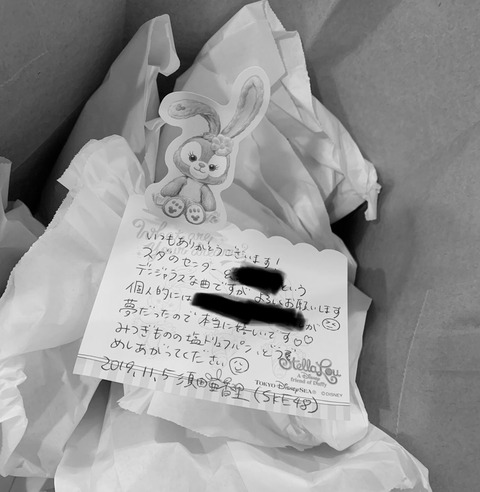 いつもありがとうございます!
スタのセンター &
という
デンジャラスな曲ですが よろしくお願いします
個人的には
が
夢だったので本当に嬉しいです♡♡
みつぎものの塩トリュフパン、どうぞ
めしあがってください
2019.11.5 須田亜香里 (SKE48)
StellaLou
A Disney
friend of Duffy
TOKYO DisneySEA® © DISNEY